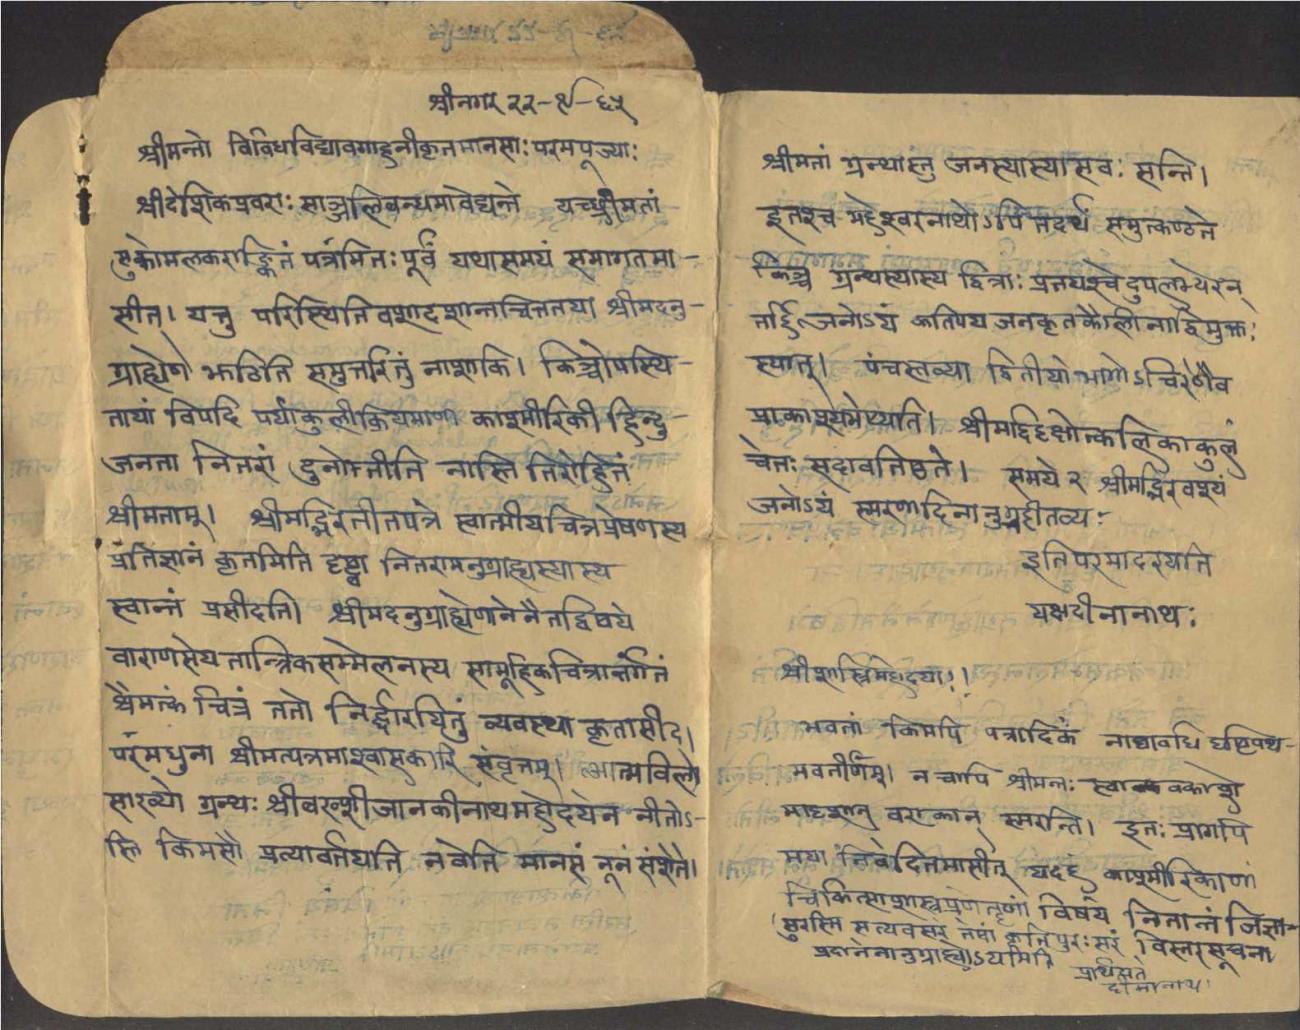 श्रीनगर २२-९-६५
श्रीमन्तो विविधविद्यावगाहनीकृतमानसाः परमपूज्याः
श्रीदेशिकप्रवराः साञ्जलिबन्धमावेद्यन्ते यच्छ्रीमतां
सुकोमलकराङ्कितं पत्रमितः पूर्वं यथासमयं समागतमा-
सीत्। यत्तु परिस्थितिवशादशान्तचित्ततया श्रीमदनु-
ग्राह्येण झठिति समुत्तरितुं नाशाकि। किञ्चोपस्थि-
तायां विपदि पर्याकुलीक्रियमाणा काश्मीरिकी हिन्दु-
जनता नितरां दुनोत्तीति नास्ति तिरोहितं
श्रीमताम्। श्रीमद्भिरतीतपत्रे स्वात्मीयचित्रप्रेषणस्य
प्रतिज्ञानं कृतमिति दृष्ट्वा नितरामनुग्राह्यस्यास्य
स्वान्तं प्रसीदति। श्रीमदनुग्राह्येणानेनैतद्विषये
वाराणसेय तान्त्रिकसम्मेलनस्य सामूहिकचित्रान्तर्गतं
श्रैमत्कं चित्रं ततो निर्द्धारयितुं व्यवस्था कृतासीद्।
परमधुना श्रीमत्पत्रमाश्वासकारि संवृत्तम्। आत्मविला
साख्यो ग्रन्थः श्रीबख्शीजानकीनाथमहोदयेन नीतोऽ-
स्ति किमसौ प्रत्यावर्त्तयति नवेति मानसं नूनं संशेते।
श्रीमतां ग्रन्थास्तु जनस्यास्यासवः सन्ति।
इतश्च महेश्वरनाथोऽपि तदर्थं समुत्कण्ठते
किञ्च ग्रन्थस्यास्य द्वित्राः प्रतयश्चेदुपलभ्येरन्
तर्हि जनोऽयं कतिपय जनकृतकौलीनाद्विमुक्तः
स्यात्। पंचस्तव्या द्वितीयो भागोऽचिरेणैव
प्राकाश्यमेष्यति। श्रीमद्दिदृक्षोत्कलिकाकुलं
चेतः सदावतिष्ठते। समये २ श्रीमद्भिरवश्यं
जनोऽयं स्मरणादिनानुगृहीतव्यः
इति परमादरयति
यक्षदीनानाथः
श्रीशास्त्रिमहोदयाः।।
भवतां किमपि पत्रादिकं नाद्यावधि दृष्टिपथ-
मवतीर्णम्। न चापि श्रीमन्तः स्वावकाशे
मादृशान् वराकान् स्मरन्ति। इतः प्रागपि
मया निवेदितमासीत् यदहं काश्मीरिकाणां
चिकित्साशास्त्रप्रणेतॄणां विषये नितान्तं जिज्ञा-
सुरस्मि सत्यवसरे तेषां कृतिपुरःसरं विस्तरसूचना
प्रदानेनानुग्राह्योऽयमिति
प्रार्थयते
दीनानाथः